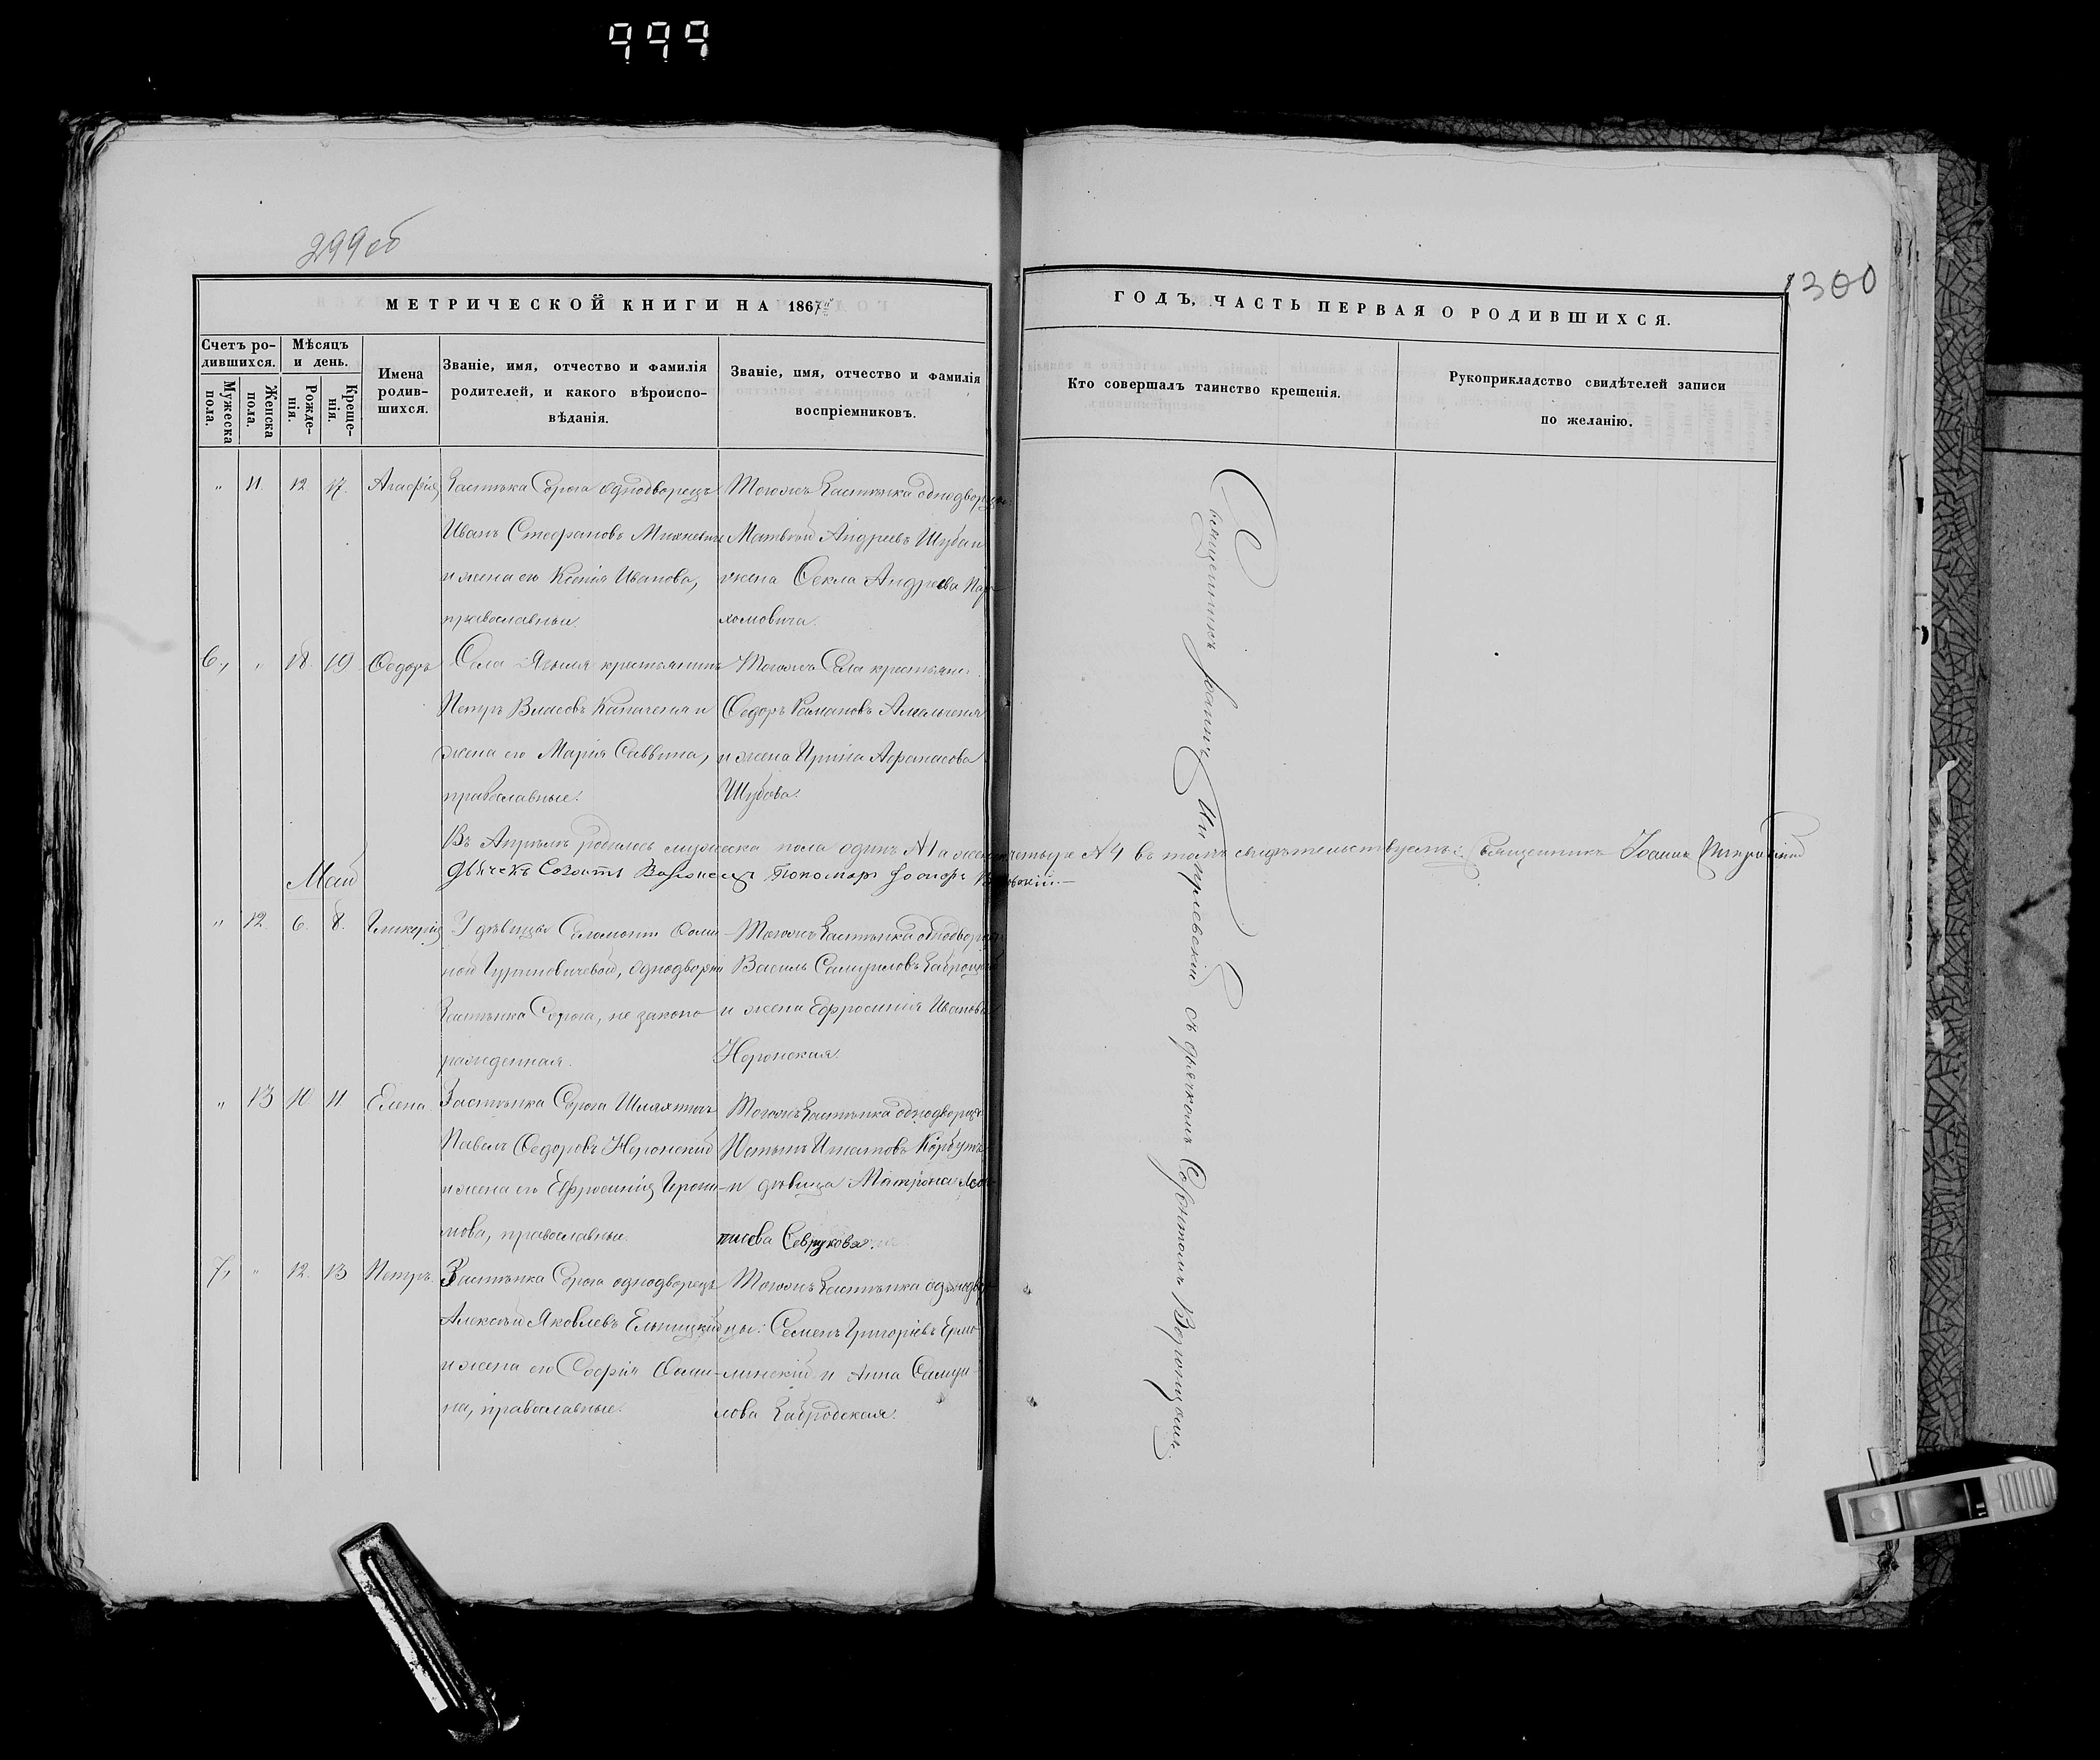 999
299 об
300
МЕТРИЧЕСКОЙ КНИГИ НА 1867й
ГОДЪ, ЧАСТЬ ПЕРВАЯ О РОДИВШИХСЯ.
Счетъ ро-
дившихся.
Мужеска
пола.
Женска
пола.
Мѣсяцъ
и день.
Рожде-
нія.
Креще-
нія.
Имена
родив-
шихся.
Званіе, имя, отчество и фамилія
родителей, и какого вѣроиспо-
вѣданія.
Званіе, имя, отчество и фамилія
воспріемниковъ.
Кто совершалъ таинство крещенія.
Рукоприкладство свидѣтелей записи
по желанію.
" 11. 12 17. Агафія
Застѣнка Сорога однодворецъ
Иванъ Стефановъ Михневичъ
и жена его Ксенія Иванова,
православные.
Тогожъ Застѣнка однодворцы
Матвѣй Андреевъ Шуба и
жена Ѳекла Андреева Пар-
хомовича.
6., " 18. 19 Ѳедоръ
Села Языля крестьянинъ
Петръ Власовъ Капаченя и
жена его Марія Саввина,
православные.
Тогожъ Села крестьяне
Ѳедоръ Романовъ
и жена Ирина Афанасова
Шубова.
Въ Апрѣлѣ родилось мужеска пола одинъ №1 а женска четыре №4 въ томъ свидѣтельствуемъ: Священникъ Іоаннъ
Дьячекъ Созонтъ Воронецъ Пономарь
Май
" 12. 6. 8. Гликерія
У дѣвицы Саломони Ѳоми-
ной , однодворки
Застѣнка Сорога, не законо
рожденная.
Тогожъ Застѣнка однодворецъ
Василь Самуиловъ
и жена Ефросинія Иванова
Неронская.
" 13 10 11 Елена.
Застѣнка Сорога Шляхтичъ
Павелъ Ѳедоровъ Неронскій
и жена его Ефросинія
мова, православные.
Тогожъ Застѣнка однодворецъ
Игнатовъ Корбутъ
и дѣвица Матрона Леон-
тиева Севрукова.
7, " 12. 13 Петръ.
Застѣнка Сорога однодворецъ
Алексѣй Яковлевъ Ельницкій
и жена его Софія Ѳоми-
на, православные.
Тогожъ Застѣнка однодвор-
цы: Семенъ Григоріевъ Ермо-
линскій и Анна Самуи-
лова Забродская.
Священникъ Іоаннъ съ дьячкомъ Созонтомъ Воронцомъ.